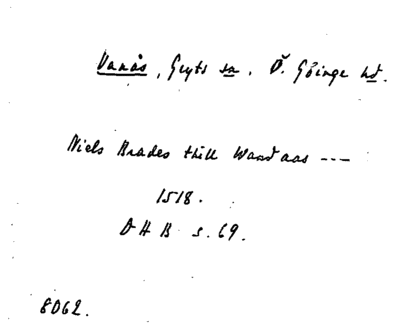 Vanås, Gryts sn. Ö. Göinge hd.
Niels Brades thill Wand aas ---
1518.
D H B s. 69.
8062.